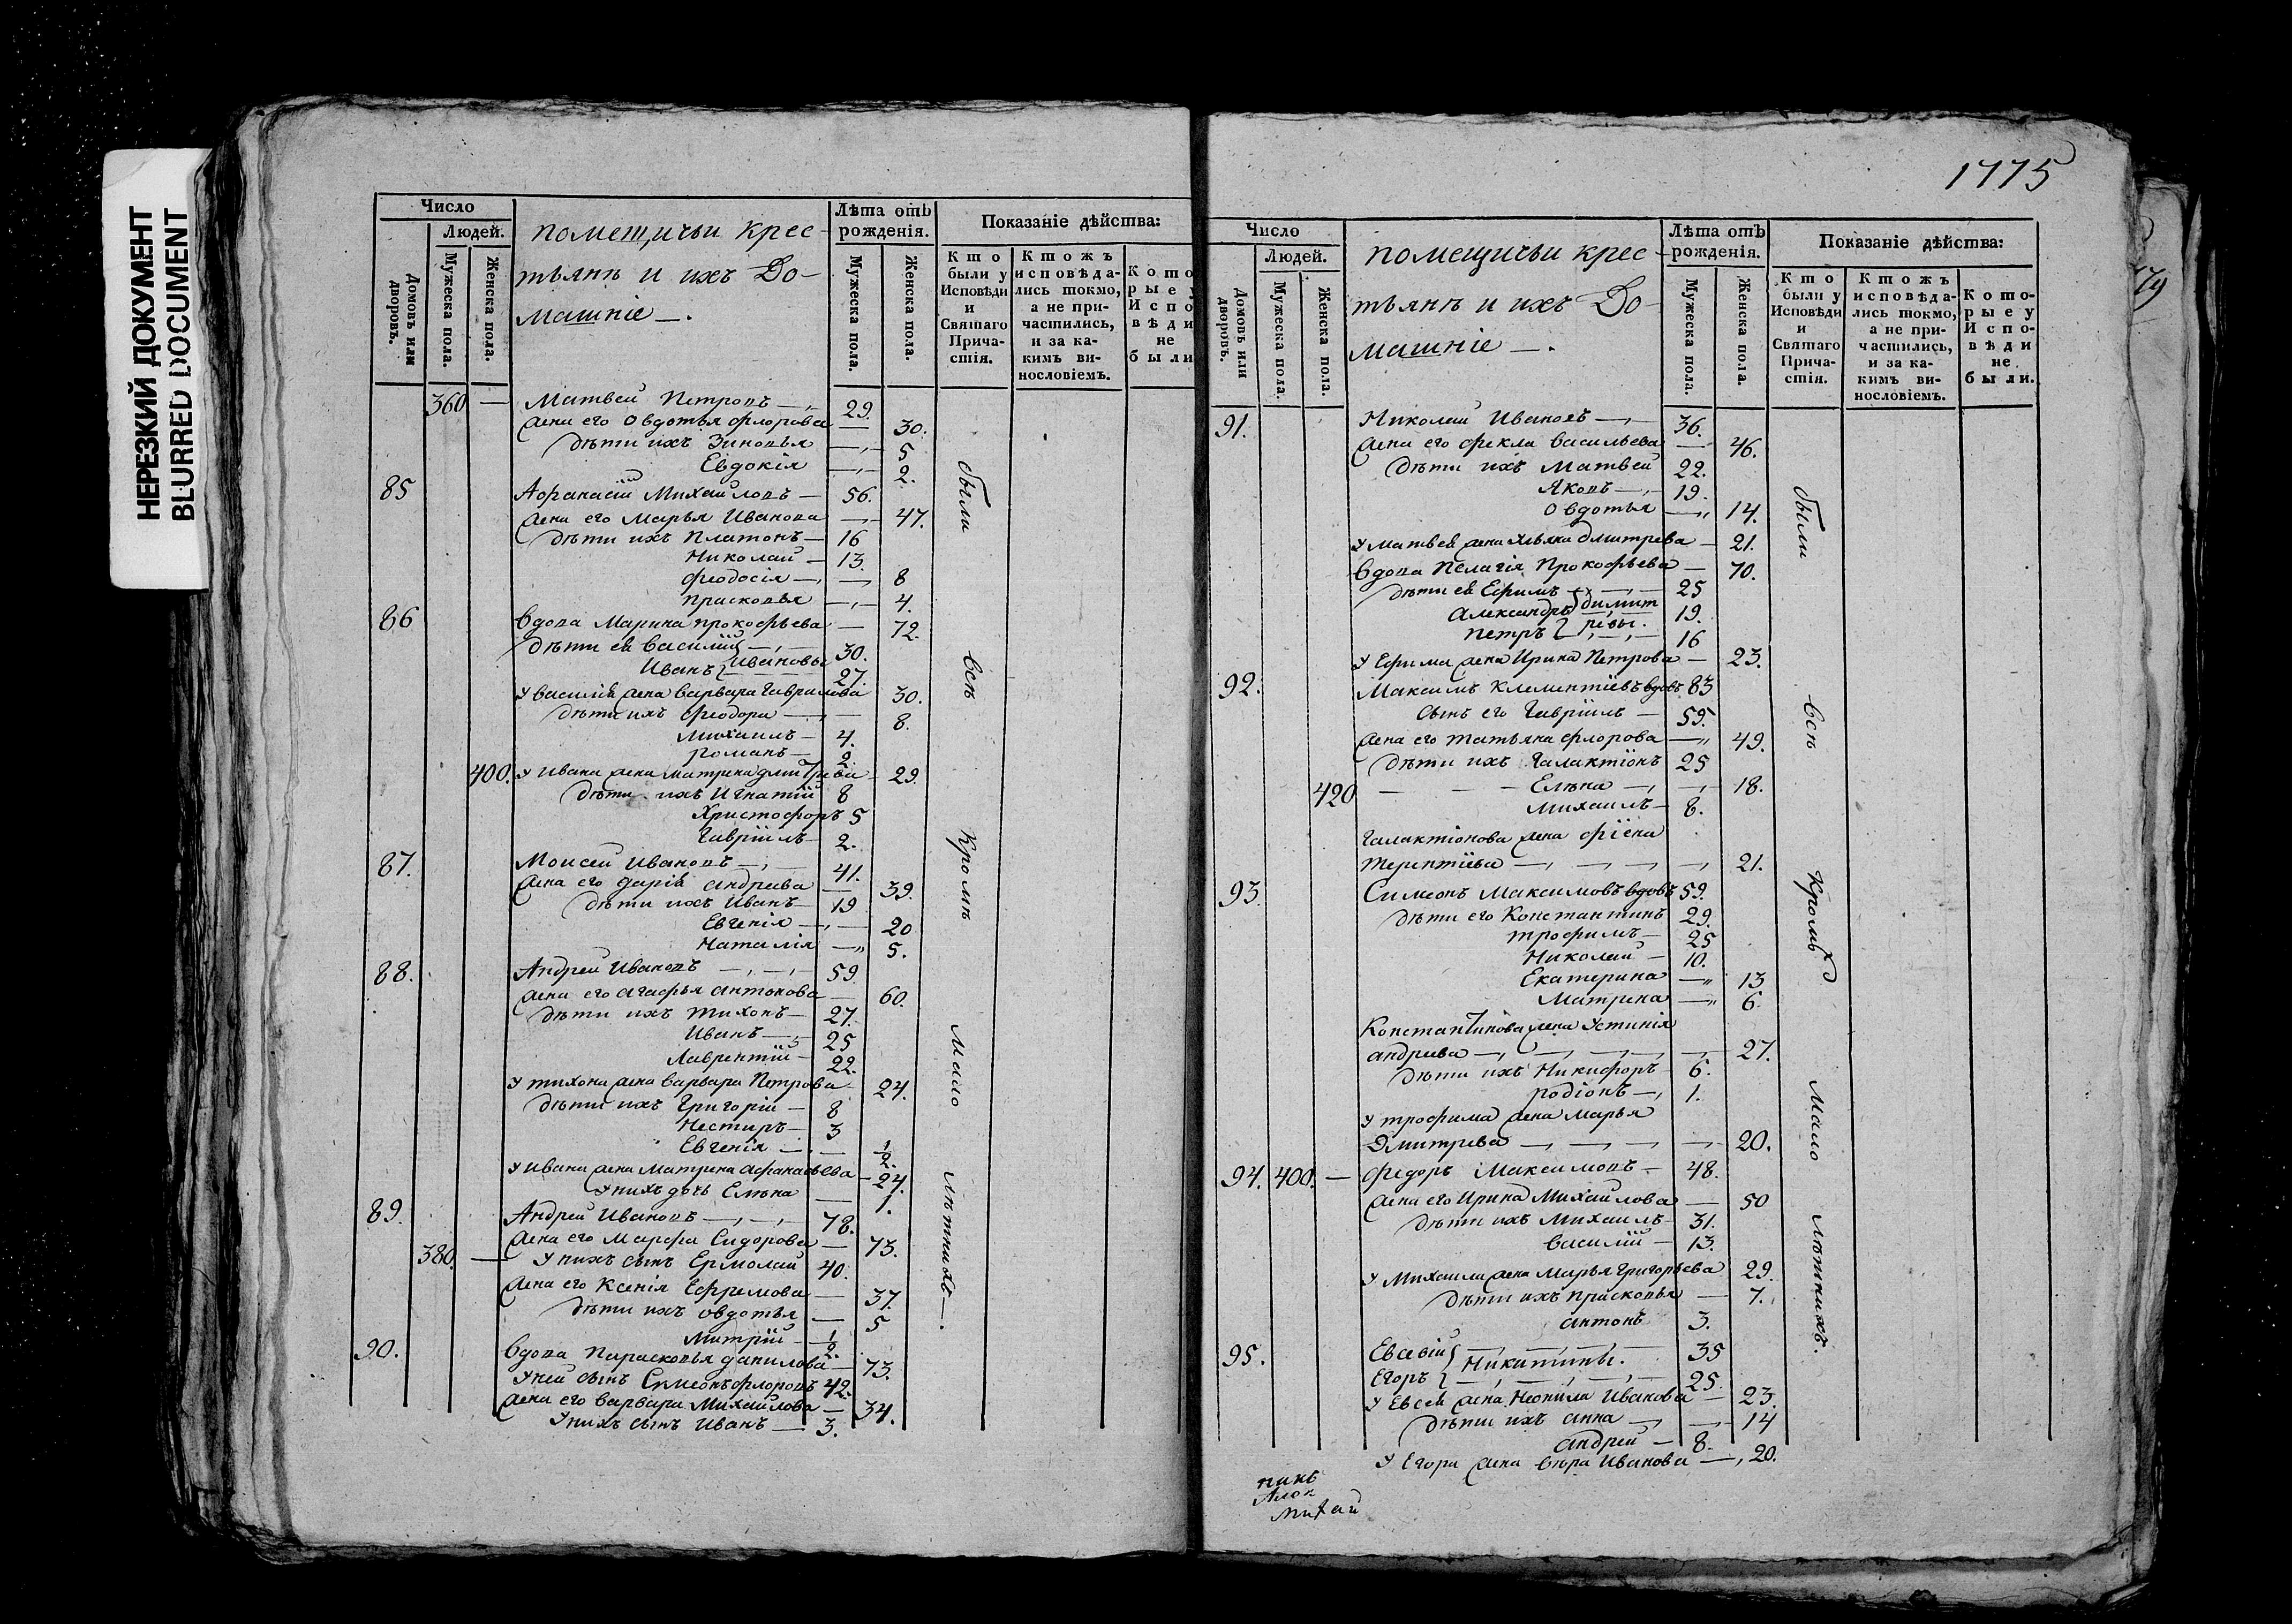 НЕРЕЗКИЙ ДОКУМЕНТ
BLURRED DOCUMENT
Число
Людей.
Домовъ или дворовъ.
Мужеска пола.
Женска пола.
помещичьи крес-
тьянъ и ихъ До-
машніе —.
Лѣта отъ рожденія.
Мужеска пола.
Женска пола.
Показаніе дѣйства:
Кто были у Исповѣди и Святаго Причастія.
Ктожъ исповѣдались токмо, а не причастились, и за какимъ винословіемъ.
Кото рые у Испо вѣди не были
360 — Матвей Петровъ — 29.
жена его Овдотья Флорова — 30.
дѣти ихъ Зиновья — 5
Евдокія — 2.
85 Афанасій Михайловъ — 56.
жена его Марья Иванова — 47.
дѣти ихъ Платонъ — 16
Николай — 13.
Феодосія — 8
Прасковья — 4.
86 вдова Марина Прокофьева — 72.
дѣти ея Василій — 30.
Иванъ } Ивановы 27.
У Василія жена Варвара Гаврилова 30.
дѣти ихъ Феодора — 8.
Михаилъ — 4.
Романъ — 2
400. У Ивана жена Матрина Дмитрева — 29.
дѣти ихъ Игнатий 8
Христофоръ 5
Гавріилъ 2.
87. Моисей Ивановъ — 41.
жена его Дарія Андриева — 39.
дѣти ихъ Иванъ — 19
Евгенія — 20
Наталія — 5.
88. Андрей Ивановъ — 59
жена его Агафья Антонова — 60.
дѣти ихъ Тихонъ — 27.
Иванъ — 25
Лаврентій — 22.
У Тихона жена Варвара Петрова — 24.
дѣти ихъ Григорій — 8
Нестиръ — 3
Евгенія — 1/2.
У Ивана жена Матрена Афанасьева — 24.
У нихъ дочь Елѣна — 1.
89. Андрей Ивановъ — 78.
жена его Марфа Сидорова — 73.
380. — У нихъ сынъ Ермолай 40.
жена его Ксенія Ефремова — 37.
дѣти ихъ Овдотья — 5
Митрій — 1/2.
90. вдова Параскевья Данилова — 73.
У ней сынъ Симеонъ Флоровъ 42.
жена его Варвара Михайлова — 34.
У нихъ сынъ Иванъ — 3.
были
всѣ
Кромѣ
мало
лѣтнихъ —.
1775
Число
Людей.
Домовъ или дворовъ.
Мужеска пола.
Женска пола.
помещичьи крес-
тьянъ и ихъ До-
машніе —.
Лѣта отъ рожденія.
Мужеска пола.
Женска пола.
Показаніе дѣйства:
Кто были у Исповѣди и Святаго Причастія.
Ктожъ исповѣдались токмо, а не причастились, и за какимъ винословіемъ.
Которые у Исповѣди не были.
91. Николай Ивановъ — 36.
жена его Фекла Васильева — 46.
дѣти ихъ Матвей 22.
Яковъ — 19.
Овдотья — 14.
У Матвея жена Ульяна Дмитрева — 21.
вдова Пелагія Прокофьева — 70.
дѣти ея Ефимъ — 25
Александръ } димит 19.
Петръ } ревы. 16
У Ефима жена Ирина Петрова — 23.
92. Максимъ Клементіевъ вдовъ 83
сынъ его Гавріилъ — 59.
жена его Татьяна Флорова — 49.
дѣти ихъ Галактіонъ 25
420 — Елѣна — 18.
Михаилъ 8.
Галактіонова жена Фіена
Терентіева — 21.
93. Симеонъ Максимовъ вдовъ 59.
дѣти его Константинъ 29.
Трофимъ — 25
Николай — 10.
Екатерина — 13
Матрена — 6.
Константинова жена Устинія
Андриева — 27.
дѣти ихъ Никифоръ 6.
Родіонъ — 1.
У Трофима жена Марья
Дмитрева — 20.
94. 400. — Федоръ Максимовъ — 48.
жена его Ирина Михайлова — 50
дѣти ихъ Михаилъ 31.
Василій — 13.
У Михаила жена Марья Григорьева 29.
дѣти ихъ Прасковья — 7.
Антонъ 3.
95. Евсевій } — 35
Никитины.
Егоръ } — 25.
У Евсея жена Неонила Иванова — 23.
дѣти ихъ Анна — 14
Андрей — 8.
У Егора жена Вѣра Иванова — 20.
были
всѣ
Кромѣ
мало
лѣтнихъ.